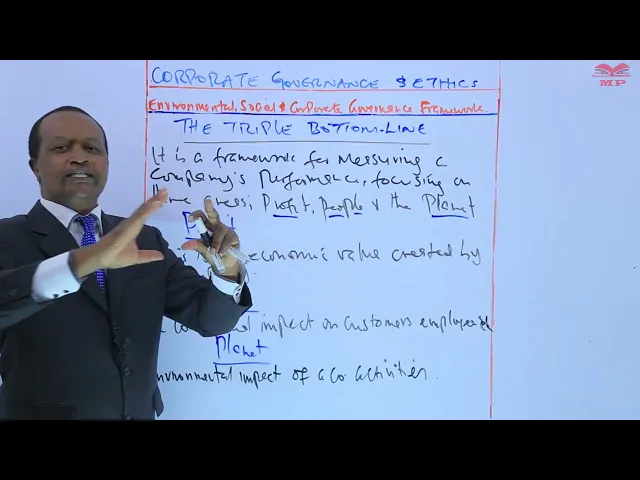 MP
CORPORATE GOVERNANCE & ETHICS
Environmental, Social & Corporate Governance Framework.
THE TRIPLE BOTTOM-LINE
It is a framework for measuring a
Company's performance, focusing on
Profit, People & the Planet
economic value created by
impact on customers employees
Planet
environmental impact of a co activities.